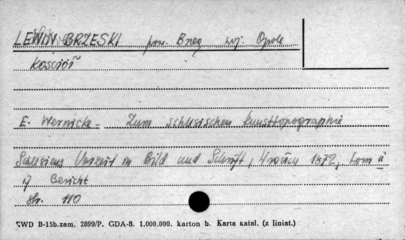 LEWIN BRZESKI pow. Brzeg woj. Opole
Kościół
E. Wernicke - Zum schlesischen kunsttopographie
Schlesiens Vorzeit in Bild und Schrift, 1872, tom II
17 Bericht
str. 110
ZWD B-15b.zam. 2899/P. GDA-8. 1.000.000. karton b. Karta katal. (z liniat.)